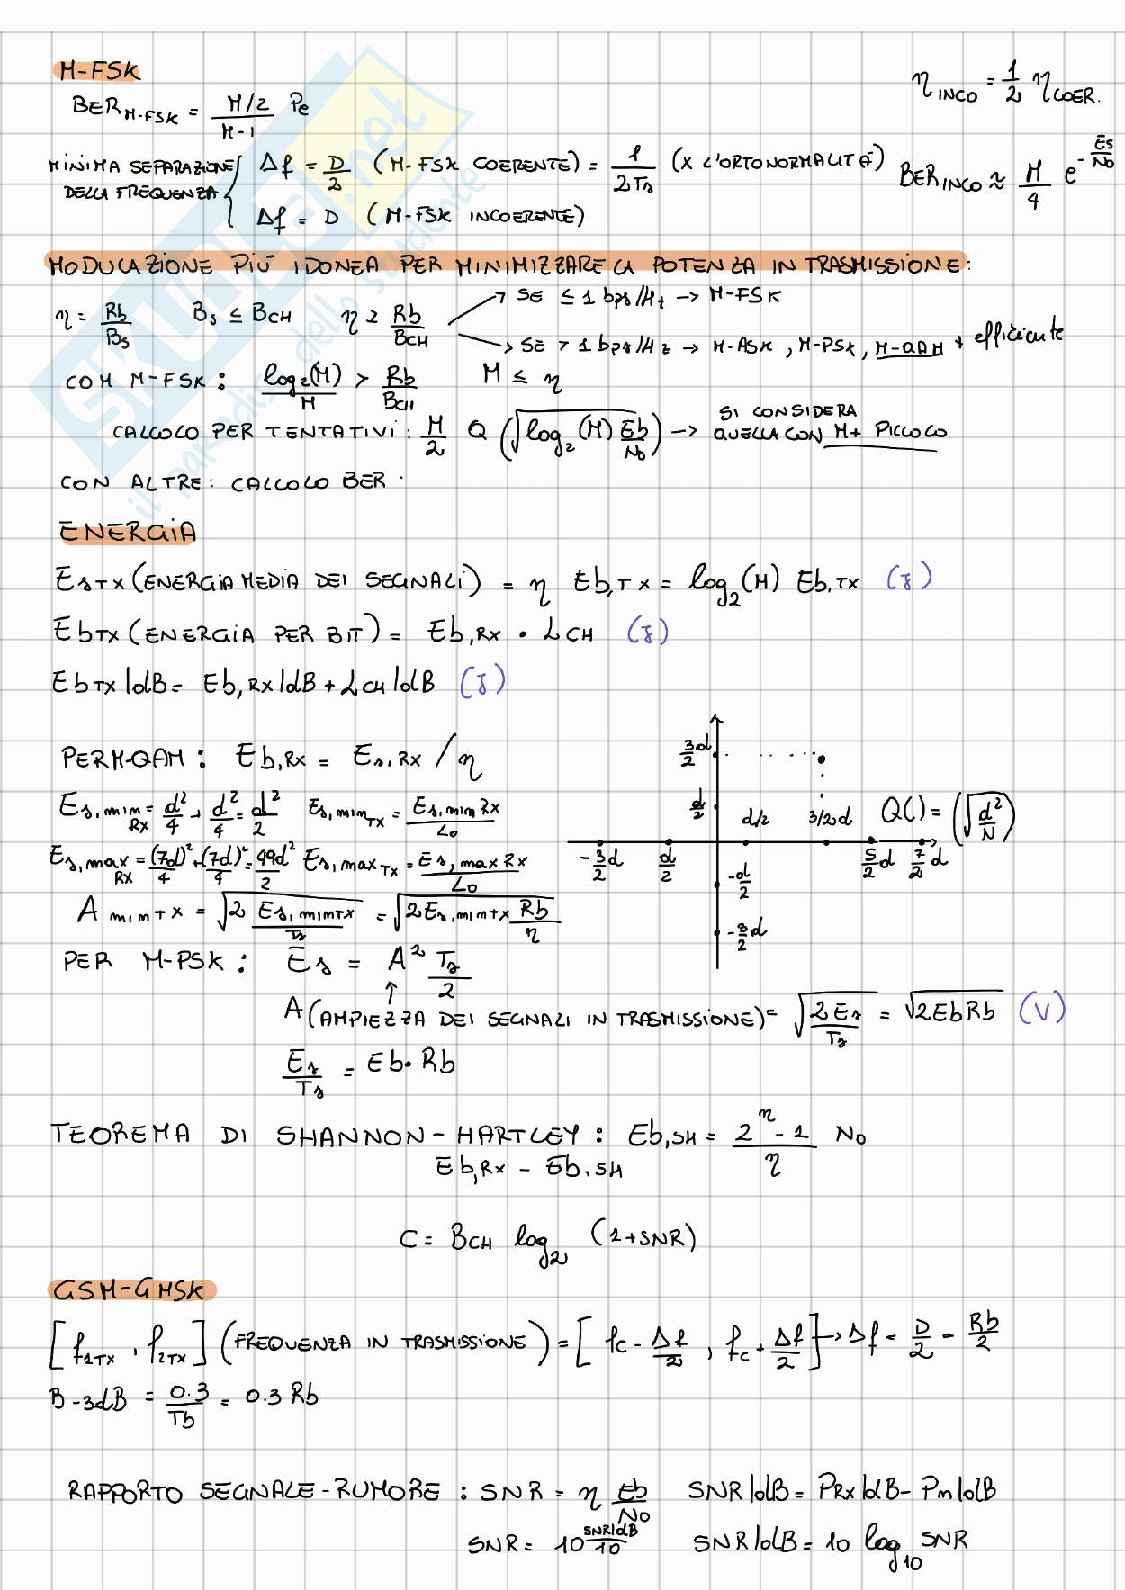 M-FSK
η INCO = 1/2 η COER.
BER M-FSK = (M/2)/(M-1) Pe
MINIMA SEPARAZIONE DELLA FREQUENZA { Δf = D/2 (M-FSK COERENTE) = 1/(2Ts) (X L'ORTONORMALITÀ)
Δf = D (M-FSK INCOERENTE)
BER INCO ≈ M/4 e^(-Es/No)
MODULAZIONE PIÙ IDONEA PER MINIMIZZARE LA POTENZA IN TRASMISSIONE:
η = Rb/Bs Bs ≤ BCH η ≥ Rb/BCH → SE ≤ 1 bps/Hz → M-FSK
→ SE > 1 bps/Hz → M-ASK, M-PSK, M-QAM + efficiente
COM M-FSK: log2(M)/M > Rb/BCH M ≤ η
CALCOLO PER TENTATIVI: M/2 Q(√(log2(M) Eb/No)) → SI CONSIDERA QUELLA CON M + PICCOLO
CON ALTRE: CALCOLO BER.
ENERGIA
Es TX (ENERGIA MEDIA DEI SEGNALI) = η Eb,TX = log2(M) Eb,TX (J)
Eb TX (ENERGIA PER BIT) = Eb,RX · LCH (J)
Eb TX|dB = Eb,RX|dB + LCH|dB (J)
PER M-QAM: Eb,RX = Es,RX / η
Es,min RX = d²/4 + d²/4 = d²/2 Es,min TX = Es,min RX / Lo
Es,max RX = (7d)²/4 + (7d)²/4 = 49d²/2 Es,max TX = Es,max RX / Lo
3/2 d
d/2
d/2 3/2 d Q() = (√(d²/N))
-3/2 d d/2 5/2 d 7/2 d
-d/2
-3/2 d
A min TX = √(2 Es,min TX / Ts) = √(2 Es,min TX Rb/η)
PER M-PSK: Es = A² Ts/2
↑
A (AMPIEZZA DEI SEGNALI IN TRASMISSIONE) = √(2Es/Ts) = √(2EbRb) (V)
Es/Ts = Eb · Rb
TEOREMA DI SHANNON-HARTLEY: Eb,SH = (2^η - 1)/η No
Eb,RX - Eb,SH
C = BCH log2 (1+SNR)
GSM-GMSK
[f1TX, f2TX] (FREQUENZA IN TRASMISSIONE) = [fc - Δf/2, fc + Δf/2] → Δf = D/2 = Rb/2
B-3dB = 0.3/Tb = 0.3 Rb
RAPPORTO SEGNALE-RUMORE: SNR = η Eb/No SNR|dB = PRX|dB - Pn|dB
SNR = 10^(SNR|dB/10) SNR|dB = 10 log10 SNR
SKUOLA.net
il paradiso dello studente